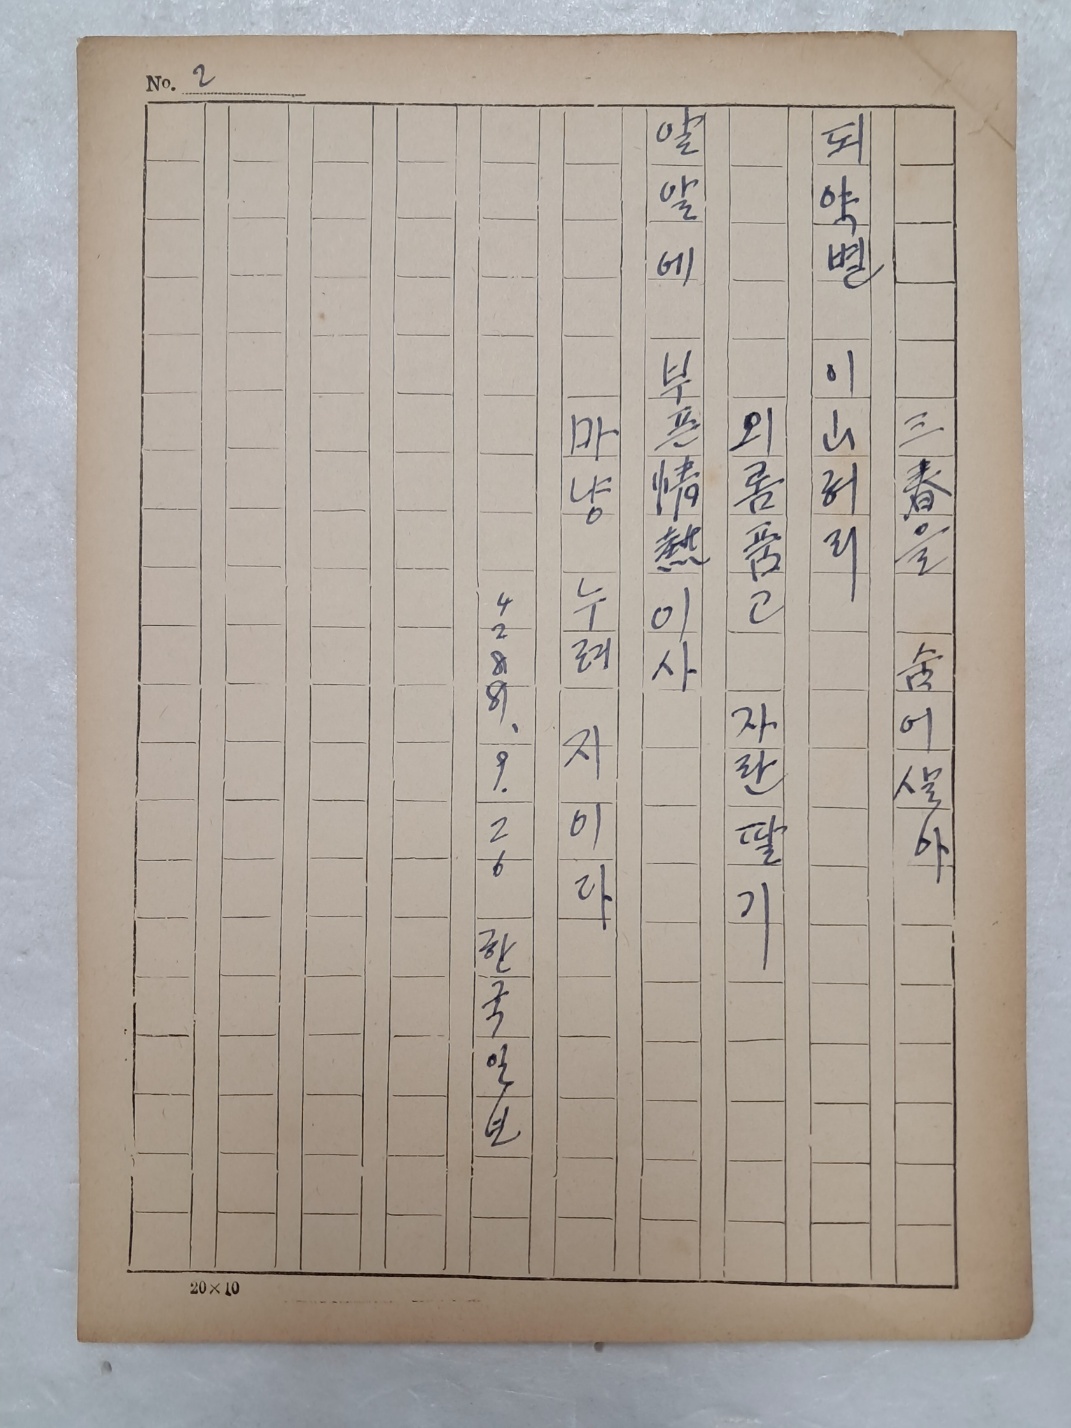 No. 2
三春을 숨어 살아
뙤약볕 이 山허리
외롬 품고 자란 딸기
알알에 부픈 情熱이사
마냥 누려 지이다
4288. 9. 26 한국일보
20×10